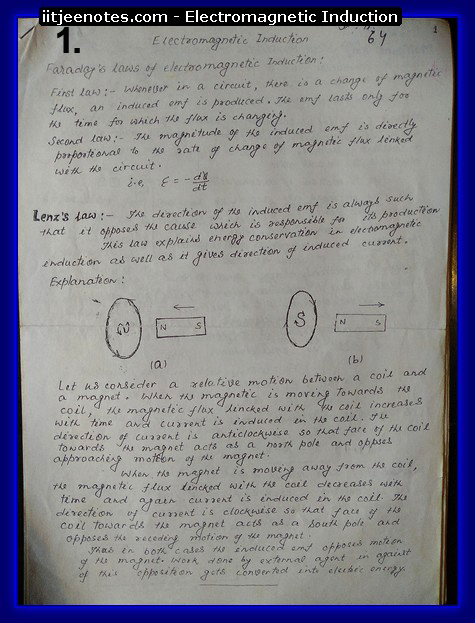 iitjeenotes.com - Electromagnetic Induction
1.
64
1
Electromagnetic Induction
Faraday's laws of electromagnetic Induction:
First law :- Whenever in a circuit, there is a change of magnetic
flux, an induced emf is produced. The emf lasts only for
the time for which the flux is changing.
Second law :- The magnitude of the induced emf is directly
proportional to the rate of change of magnetic flux linked
with the circuit.
i.e, ε = - dφ/dt
Lenz's law :- The direction of the induced emf is always such
that it opposes the cause which is responsible for its production
This law explains energy conservation in electromagnetic
induction as well as it gives direction of induced current.
Explanation :
N N S S N S
(a) (b)
Let us consider a relative motion between a coil and
a magnet. When the magnetic is moving towards the
coil, the magnetic flux lincked with the coil increases
with time and current is induced in the coil. The
direction of current is anticlockwise so that face of the coil
towards the magnet acts as a north pole and opposes
approaching motion of the magnet.
When the magnet is moving away from the coil,
the magnetic flux lincked with the coil decreases with
time and again current is induced in the coil. The
direction of current is clockwise so that face of the
coil towards the magnet acts as a south pole and
opposes the receding motion of the magnet.
Thus in both cases the induced emf opposes motion
of the magnet. Work done by external agent in against
of this opposition gets converted into electric energy.